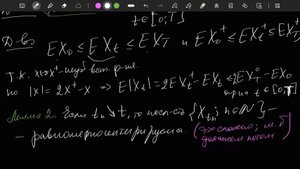 t∈[0,T]
Д-во EX₀ ≤ EXₜ ≤ EX_T и EX₀⁺ ≤ EXₜ⁺ ≤ EX_T⁺
Т.к. x↦x⁺
но |x| = 2x⁺-x ⇒ E|Xₜ| = 2EXₜ⁺ - EXₜ ≤ 2EX_T⁺ - EX₀
при t∈[0,T]
Лемма 2. Если tₙ↘t, то посл-ть {X_{tₙ}; n∈ℕ} –
равномерно интегрируема. (это сложно;
докажем потом)